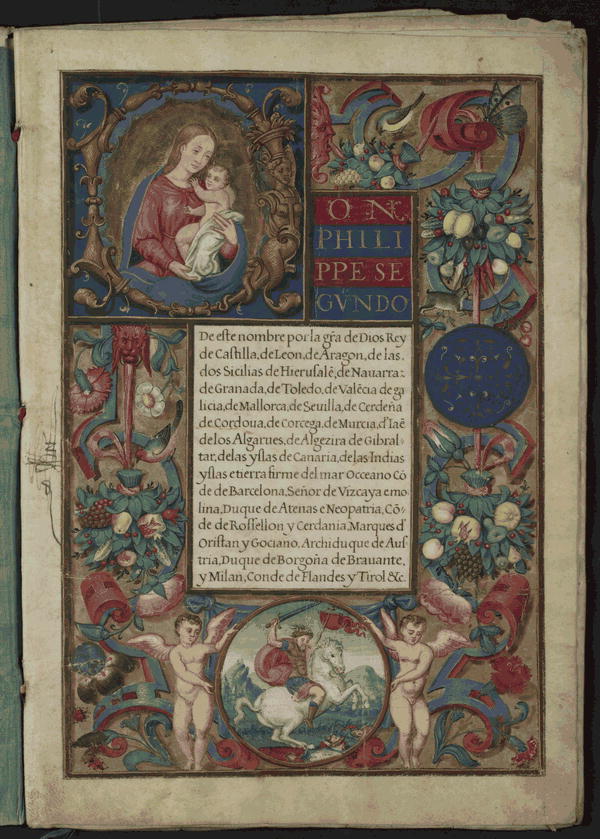 ON
PHILI
PPE SE
GVNDO
De este nombre por la gr̃a de Dios Rey
de Castilla, de Leon, de Aragon, de las
dos Sicilias de Hierusalẽ, de Nauarra
de Granada, de Toledo, de Valẽcia de ga
licia, de Mallorca, de Seuilla, de Cerdeña
de Cordoua, de Corcega, de Murcia, d'Iaẽ
de los Algarues, de Algezira de Gibral-
tar, de las yslas de Canaria, de las Indias
yslas e tierra firme del mar Occeano Cõ
de de Barcelona, Señor de Vizcaya e mo
lina, Duque de Atenas e Neopatria, Cõ-
de de Rossellon y Cerdania, Marques d'
Oristan y Gociano, Archiduque de Aus
tria, Duque de Borgoña de Brauante,
y Milan, Conde de Flandes y Tirol &c.